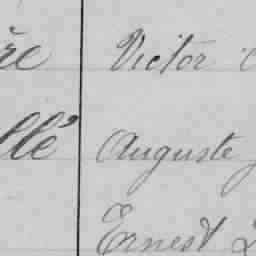 re Victor
llé Auguste
Ernest